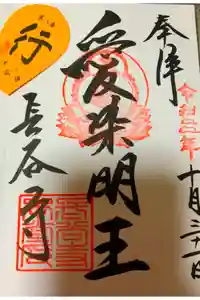 奉拝
令和二年十月三十一日
愛染明王
長谷寺